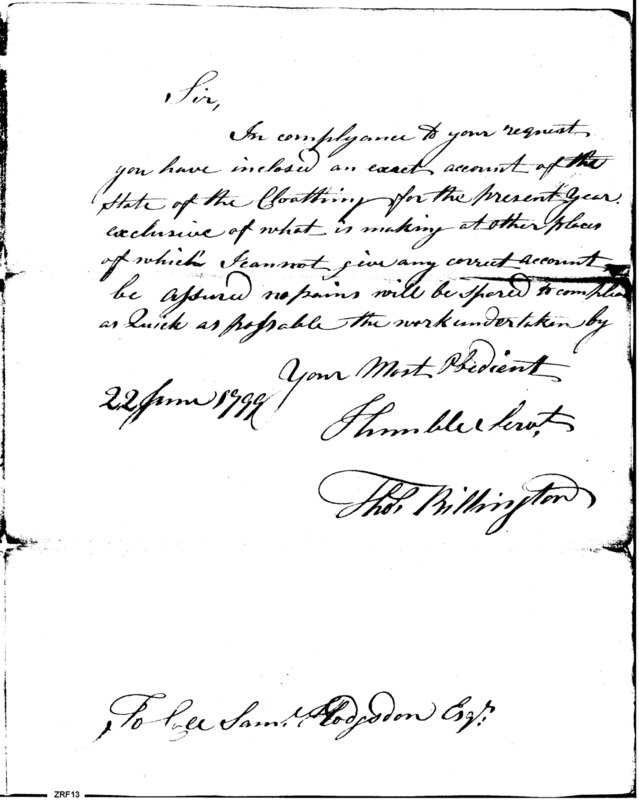 Sir,
In complyance to your request
you have inclosed an exact account of the
State of the Cloathing for the present Year.
exclusive of what is making at other places
of which I cannot give any correct account
be assured no pains will be spared to compleat
as Quick as possable the work undertaken by
Your Most Obedient
22 June 1799
Humble Servt,
Thos. Billington
To Coll Saml. Hodgsdon Esqr.
ZRF13